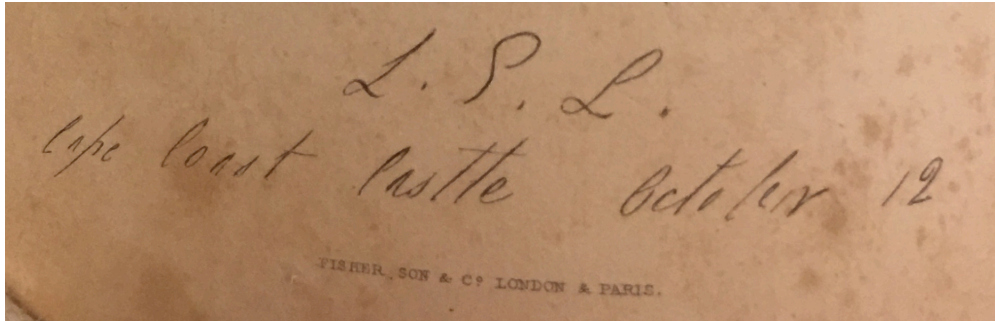 L. E. L.
Cape Coast Castle October 12
FISHER, SON & Co. LONDON & PARIS.